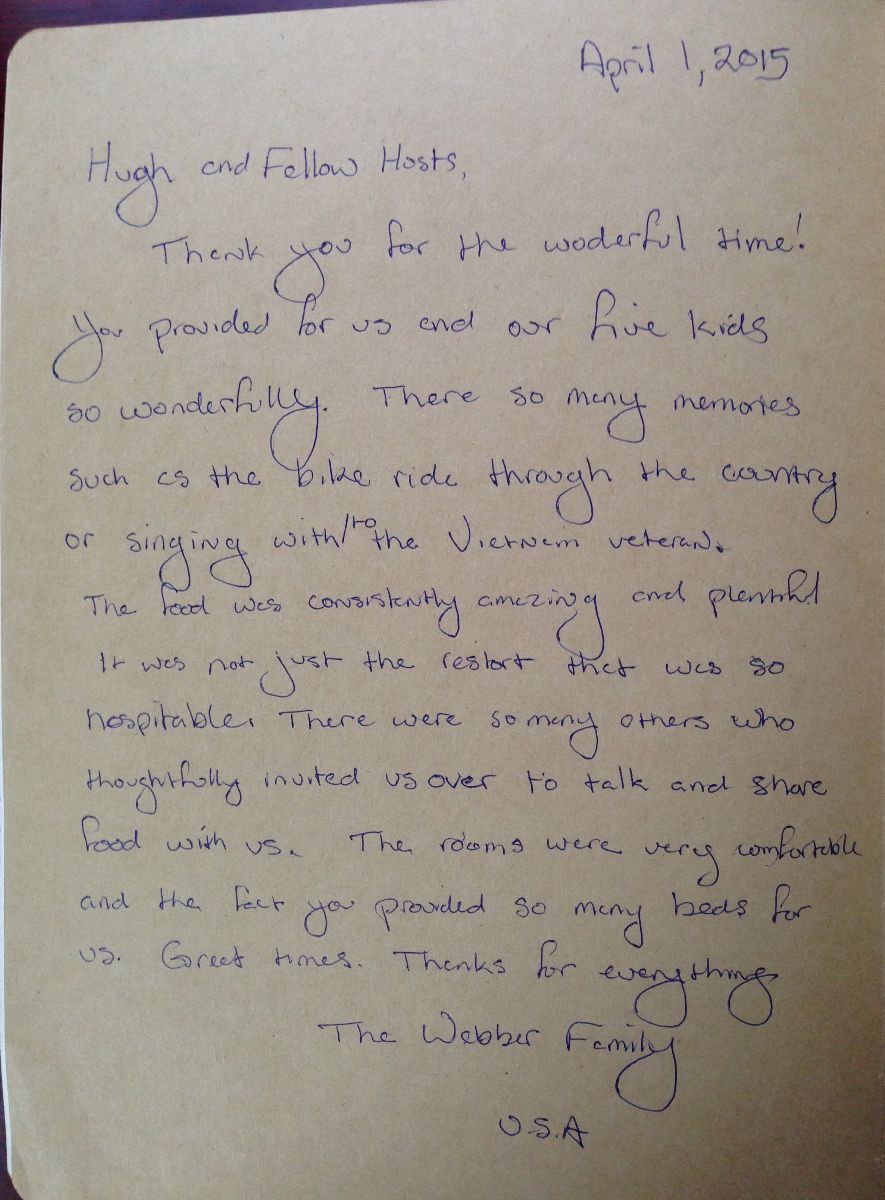 April 1, 2015
Hugh and Fellow Hosts,
Thank you for the woderful time!
You provided for us and our five kids
so wonderfully. There so many memories
such as the bike ride through the country
or singing with/to the Vietnam veteran.
The food was consistently amazing and plentiful
It was not just the restort that was so
hospitable. There were so many others who
thoughtfully invited us over to talk and share
food with us. The rooms were very comfortable
and the fact you provided so many beds for
us. Great times. Thanks for everything
The Webber Family
U.S.A